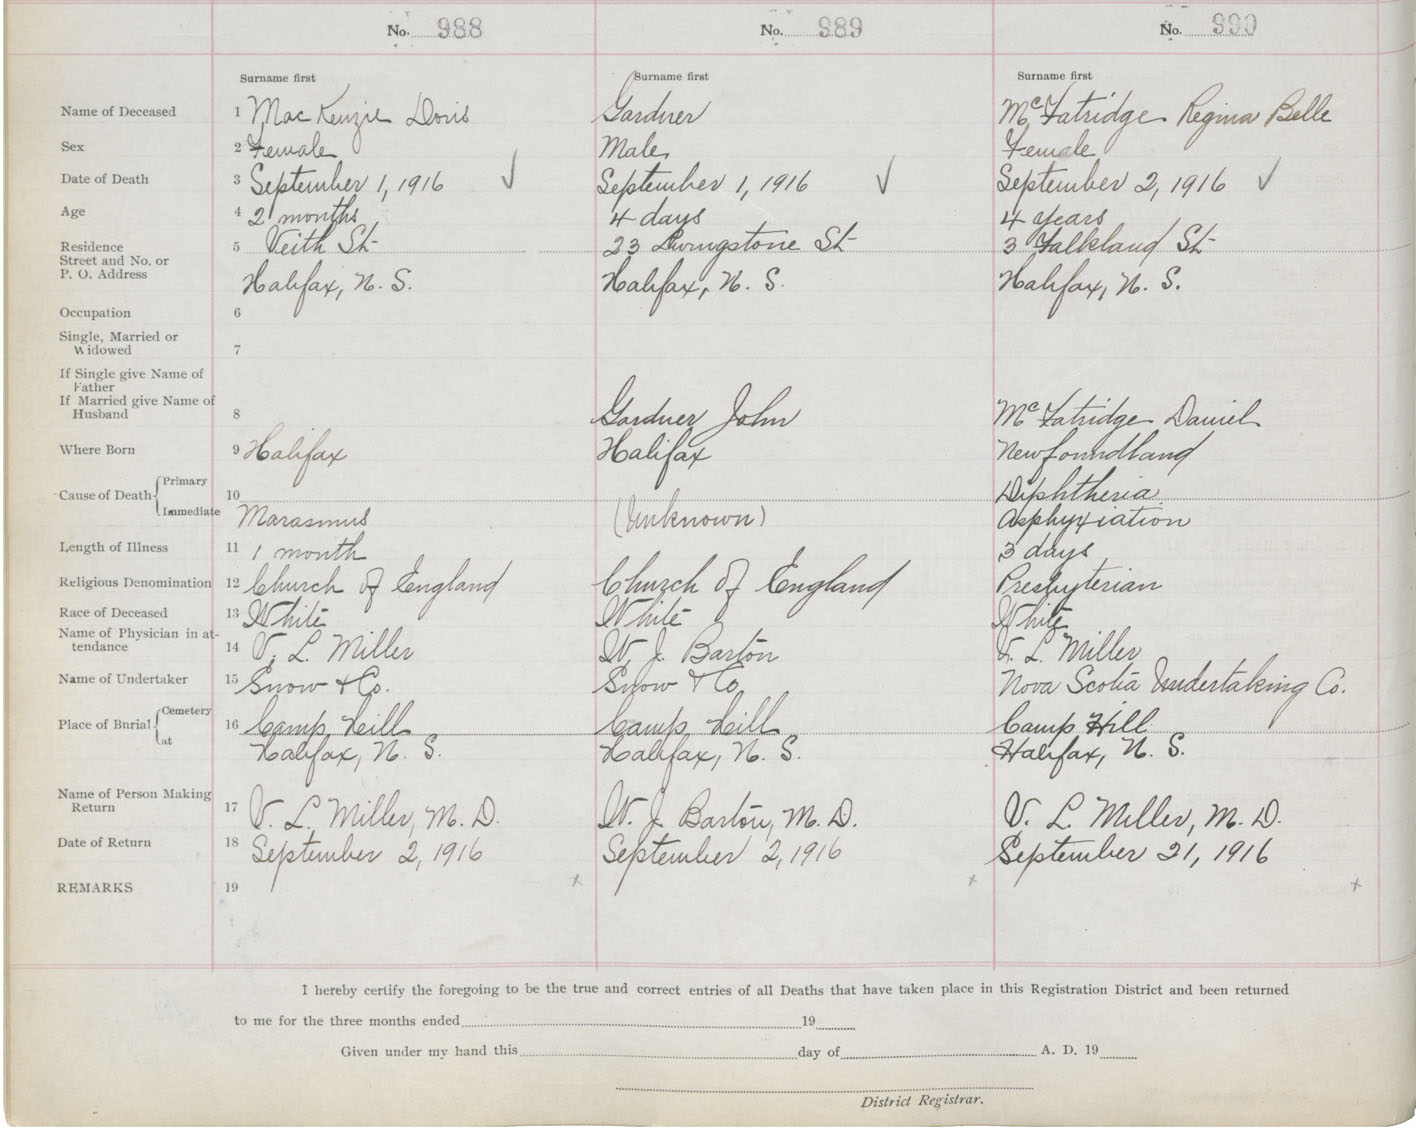 No. 988 No. 989 No. 990
Surname first Surname first Surname first
Name of Deceased 1 MacKenzie Doris Gardner McFatridge Regina Belle
Sex 2 Female Male Female
Date of Death 3 September 1, 1916 September 1, 1916 September 2, 1916
Age 4 2 months 4 days 4 years
Residence 5 Veith St 23 Livingstone St 3 Falkland St
Street and No. or
P. O. Address Halifax, N. S. Halifax, N. S. Halifax, N. S.
Occupation 6
Single, Married or
Widowed 7
If Single give Name of
Father
If Married give Name of
Husband 8 Gardner John McFatridge Daniel
Where Born 9 Halifax Halifax Newfoundland
Cause of Death Primary 10 Diphtheria
Immediate Marasmus (Unknown) Asphyxiation
Length of Illness 11 1 month 3 days
Religious Denomination 12 Church of England Church of England Presbyterian
Race of Deceased 13 White White White
Name of Physician in at-
tendance 14 V. L. Miller W. J. Barton V. L. Miller
Name of Undertaker 15 Snow & Co. Snow & Co Nova Scotia Undertaking Co.
Place of Burial Cemetery 16 Camp Hill Camp Hill Camp Hill
at Halifax, N. S. Halifax, N. S. Halifax, N. S.
Name of Person Making
Return 17 V. L. Miller, M. D. W. J. Barton, M. D. V. L. Miller, M. D.
Date of Return 18 September 2, 1916 September 2, 1916 September 21, 1916
REMARKS 19 x x x
I hereby certify the foregoing to be the true and correct entries of all Deaths that have taken place in this Registration District and been returned
to me for the three months ended 19
Given under my hand this day of A. D. 19
District Registrar.